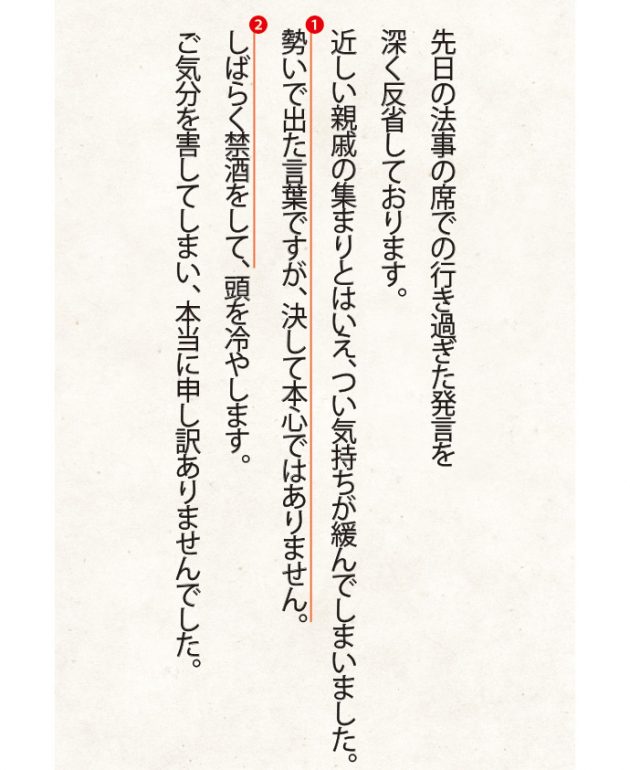 先日の法事の席での行き過ぎた発言を
深く反省しております。
近しい親戚の集まりとはいえ、つい気持ちが緩んでしまいました。
1
勢いで出た言葉ですが、決して本心ではありません。
2
しばらく禁酒をして、頭を冷やします。
ご気分を害してしまい、本当に申し訳ありませんでした。